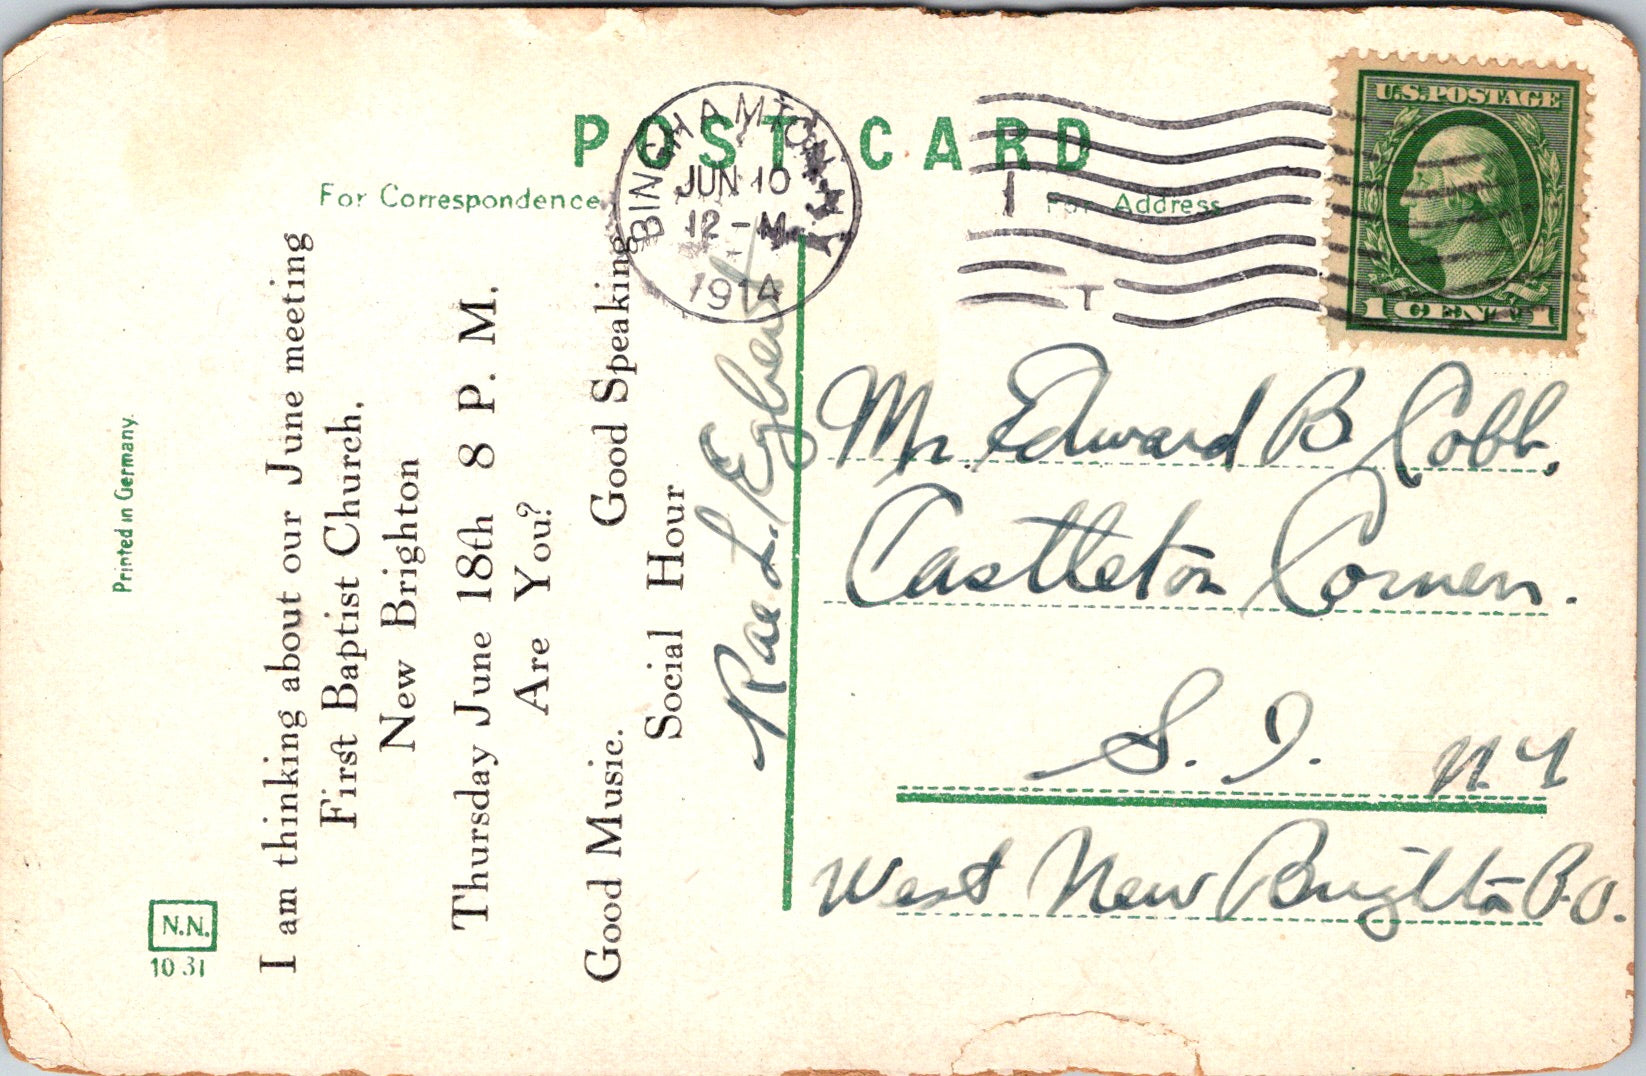 POST CARD
For Correspondence
For Address
BINGHAMTON N.Y.
JUN 10
12 - M
1914
1
T
U.S. POSTAGE
1 CENT 1
Printed in Germany.
N.N.
10 31
I am thinking about our June meeting
First Baptist Church,
New Brighton
Thursday June 18th 8 P. M.
Are You?
Good Music. Good Speaking
Social Hour
Rae L. Egbert
Mr. Edward B Cobb,
Castleton Corners.
S. I. N Y
West New Brighton P.O.